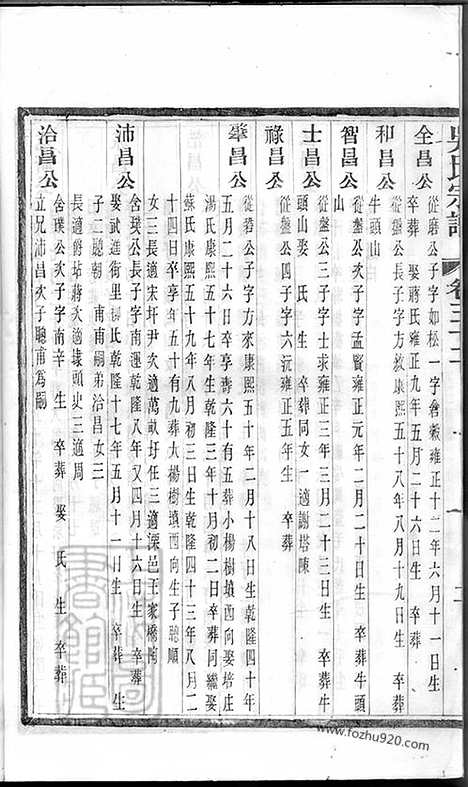 吳氏宗譜 卷三十二
全昌公 從磨公子字如松一字耆徽雍正十二年六月十一日生
卒葬 娶蔣氏雍正九年五月二十六日生 卒葬
和昌公 從盤公長子字方叙康熙五十八年八月十九日生 卒葬
牛頭山
智昌公 從盤公次子字孟賢雍正元年二月二十日生 卒葬牛頭
山
士昌公 從盤公三子字士求雍正三年三月二十三日生 卒葬牛
頭山娶 氏 生 卒葬同女一適謝塔陳
祿昌公 從盤公四子字六沅雍正五年生 卒葬
肇昌公 從磐公子字方來康熙五十年二月十八日生乾隆四十年
五月二十六日卒享壽六十有五葬小楊樹墳西向娶培庄
湯氏康熙五十七年生乾隆三年十月初二日卒葬同繼娶
蘇氏康熙五十九年八月初三日生乾隆四十三年八月二
十四日卒享年五十有九葬大楊樹墳西向生子聰順
女三長適宋圩尹次適萬畝圩任三適溧邑王家橋陶
沛昌公 含璞公長子字南運乾隆八年又四月十六日生 卒葬
娶武進街里 氏乾隆十七年五月十一日生 卒葬 生
子二聰朝 甫甫嗣弟洽昌女三
長適爵坫蔣次適埭頭史三適周
洽昌公 含璞公次子字南辛 生 卒葬 娶 氏 生 卒葬
立兄沛昌次子聰甫為嗣
www.fozhu920.com